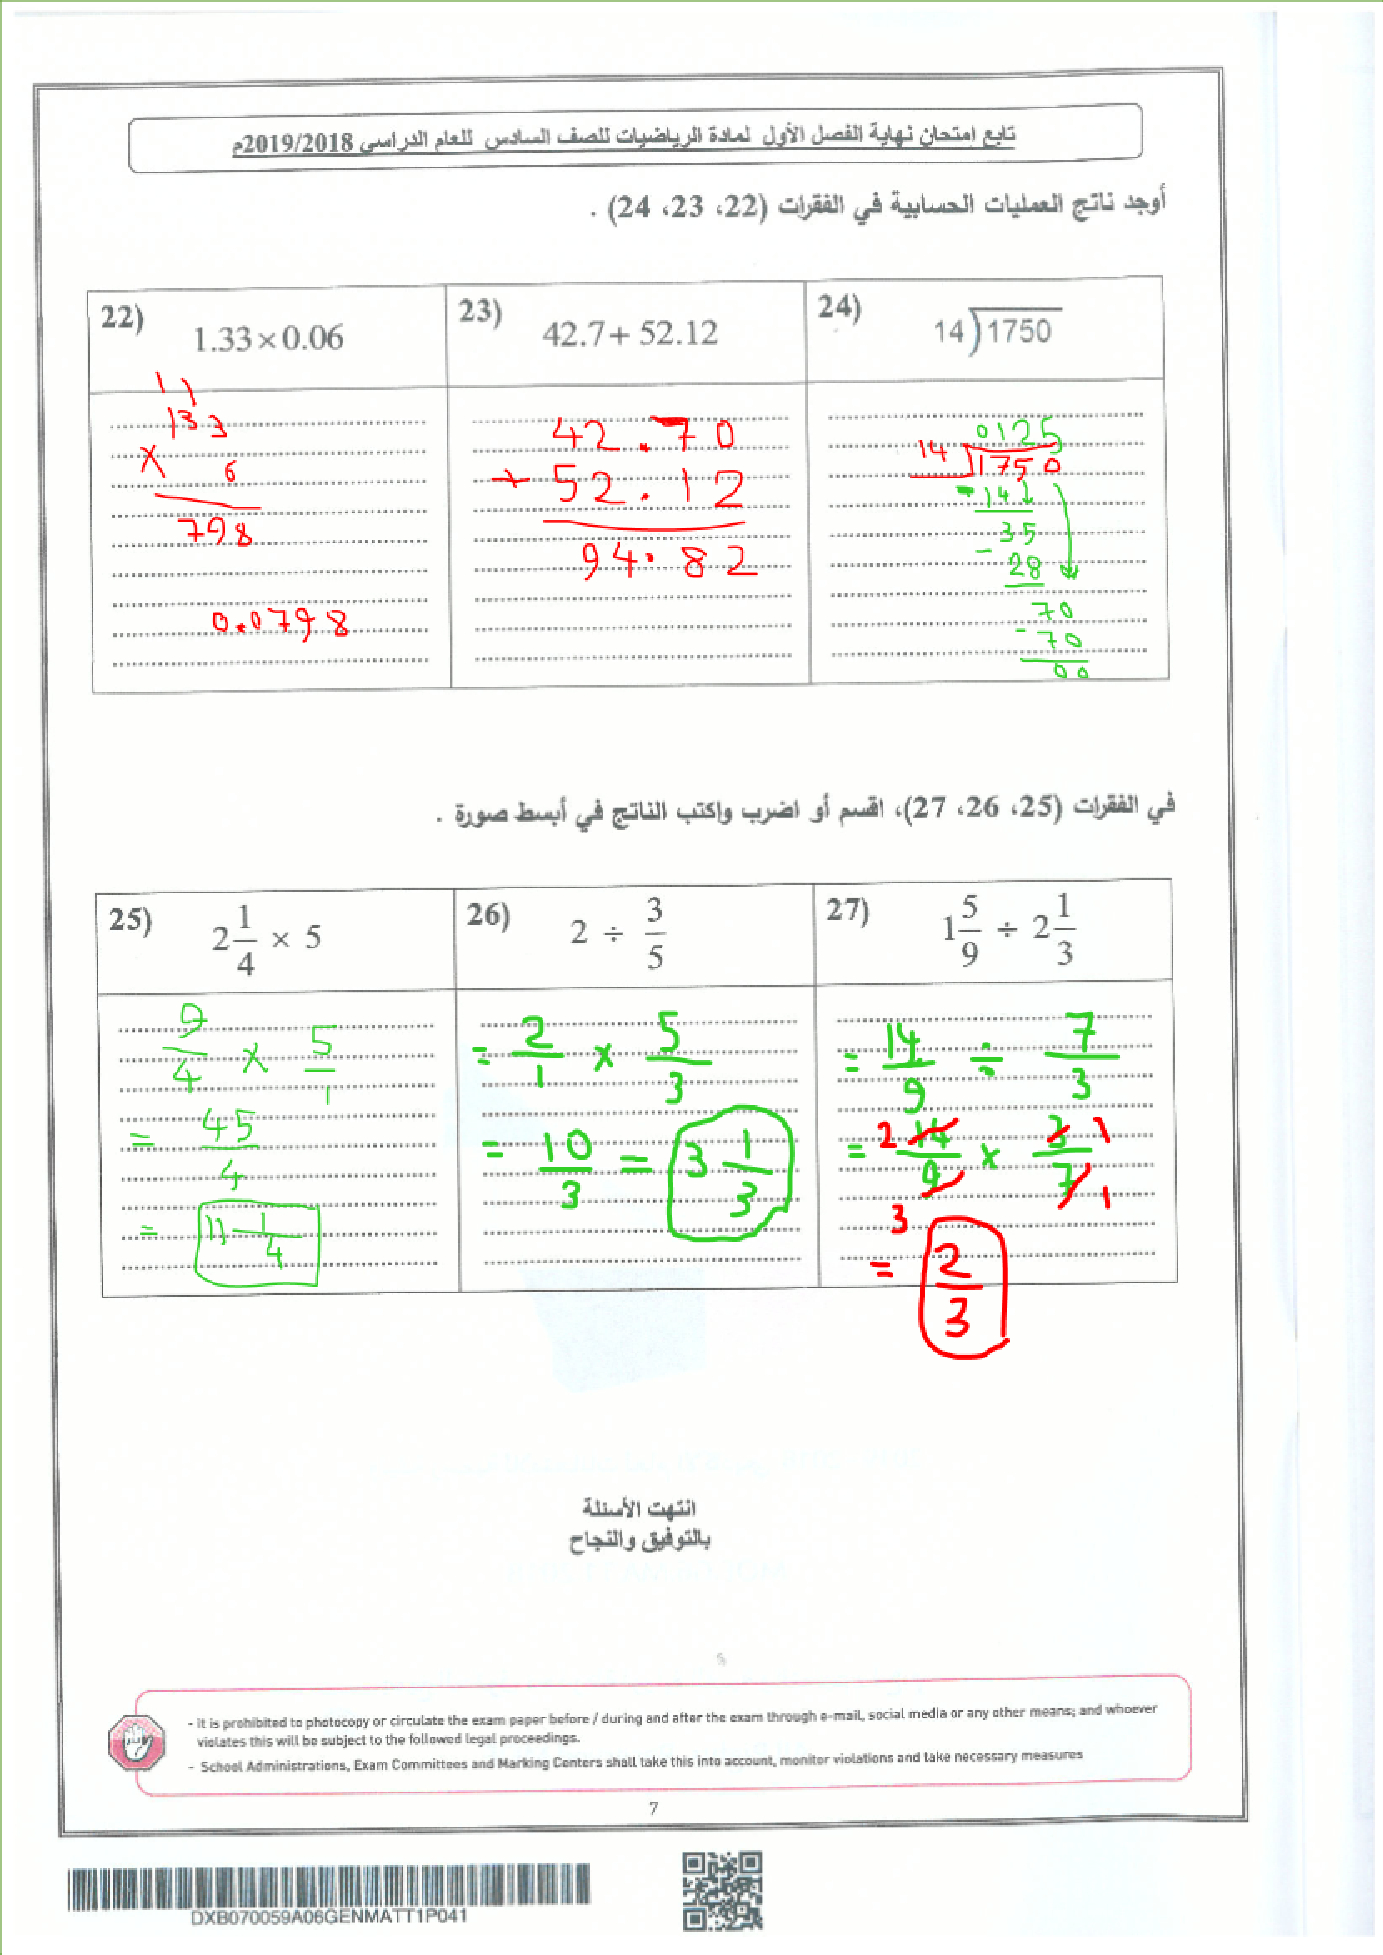 تابع امتحان نهاية الفصل الأول لمادة الرياضيات للصف السادس للعام الدراسي 2019/2018م
أوجد ناتج العمليات الحسابية في الفقرات (22، 23، 24) .
22) 1.33×0.06
11
133
× 6
798
0.0798
23) 42.7+ 52.12
42.70
+ 52.12
94.82
24) 14)1750
0125
14 1750
- 14
35
- 28
70
- 70
00
في الفقرات (25، 26، 27)، اقسم أو اضرب واكتب الناتج في أبسط صورة .
25) 2 1/4 × 5
9/4 × 5/1
= 45/4
= 11 1/4
26) 2 ÷ 3/5
= 2/1 × 5/3
= 10/3 = 3 1/3
27) 1 5/9 ÷ 2 1/3
= 14/9 ÷ 7/3
= 2 14/9 × 3/7 1
3 1
= 2/3
انتهت الأسئلة
بالتوفيق والنجاح
- It is prohibited to photocopy or circulate the exam paper before / during and after the exam through e-mail, social media or any other means; and whoever
violates this will be subject to the followed legal proceedings.
- School Administrations, Exam Committees and Marking Centers shall take this into account, monitor violations and take necessary measures
7
DXB070059A06GENMATT1P041